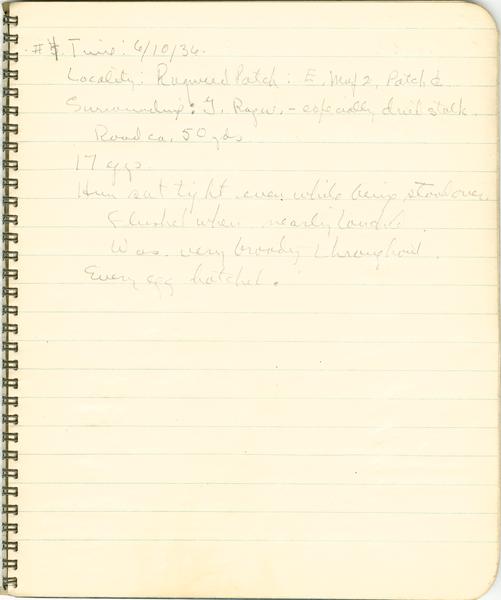 Time: 6/10/36.
Locality: Ragweed Patch: E, Map 2, Patch
Surroundings: G. Ragw. - especially dried stalk.
Road ca. 50 yds
17 eggs.
Hen sat tight even while being stood over.
Flushed when nearly touched.
Was very broody throughout.
Every egg hatched.